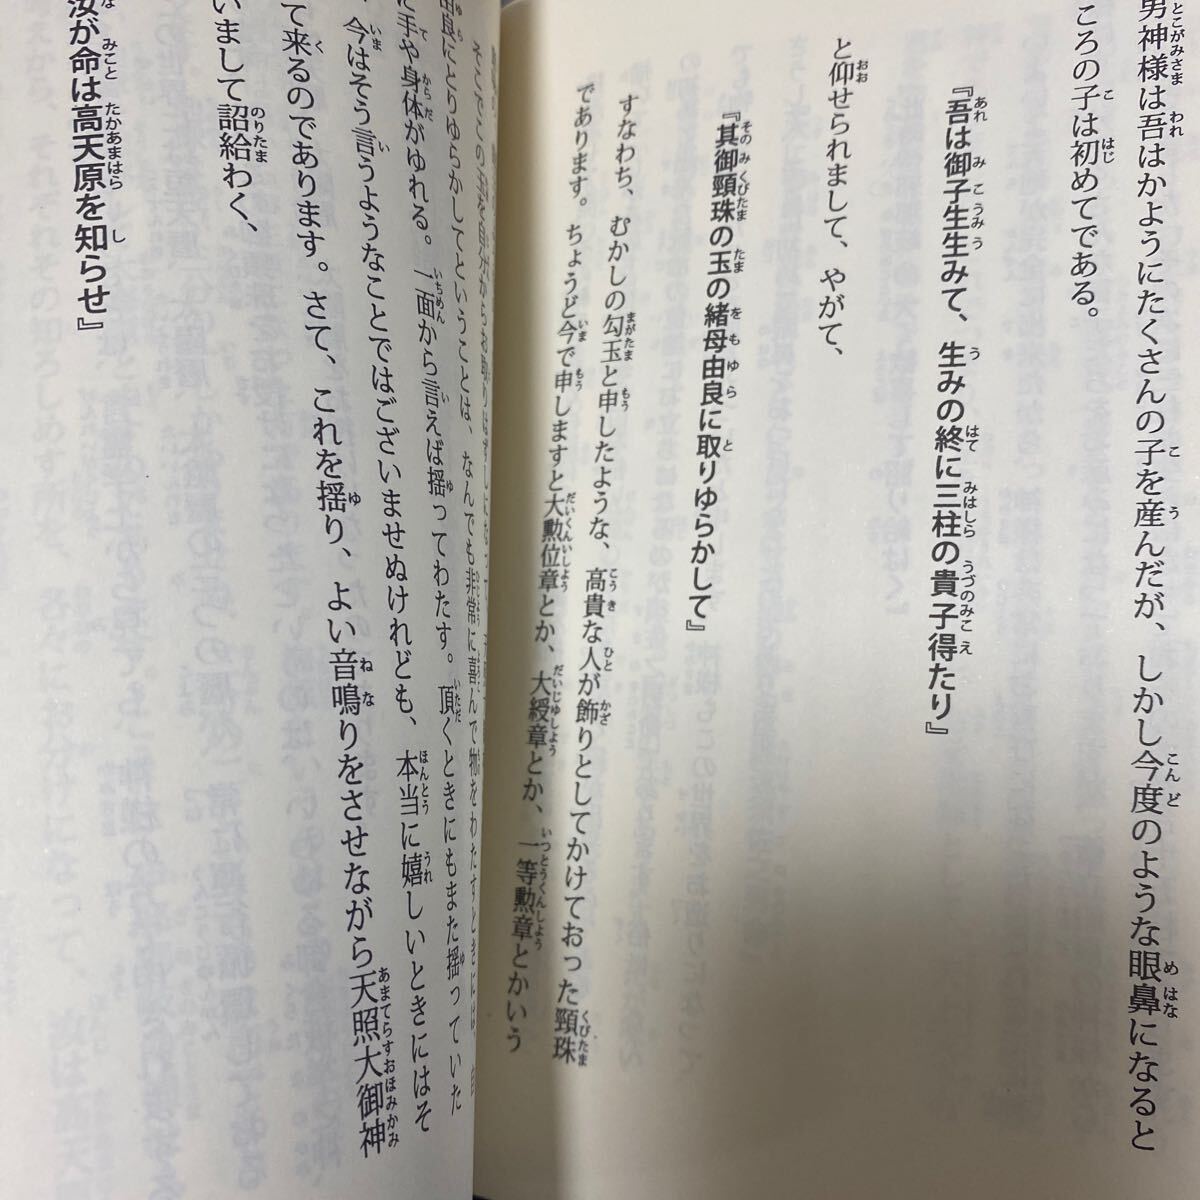 男神様は吾はかようにたくさんの子を産んだが、しかし今度のような眼鼻になると
ころの子は初めてである。
『吾は御子生生みて、生みの終に三柱の貴子得たり』
と仰せられまして、やがて、
『其御頸珠の玉の緒母由良に取りゆらかして』
すなわち、むかしの勾玉と申したような、高貴な人が飾りとしてかけておった頸珠
であります。ちょうど今で申しますと大勲位章とか、大綬章とか、一等勲章とかいう
そこでこの玉を自分からお取りはずしになって、
由良にとりゆらかしてということは、なんでも非常に喜んで物をわたすときには、
に手や身体がゆれる。一面から言えば揺ってわたす。頂くときにもまた揺っていた
今はそう言うようなことではございませぬけれども、本当に嬉しいときにはそ
て来るのであります。さて、これを揺り、よい音鳴りをさせながら天照大御神
いまして詔給わく、
汝が命は高天原を知らせ』